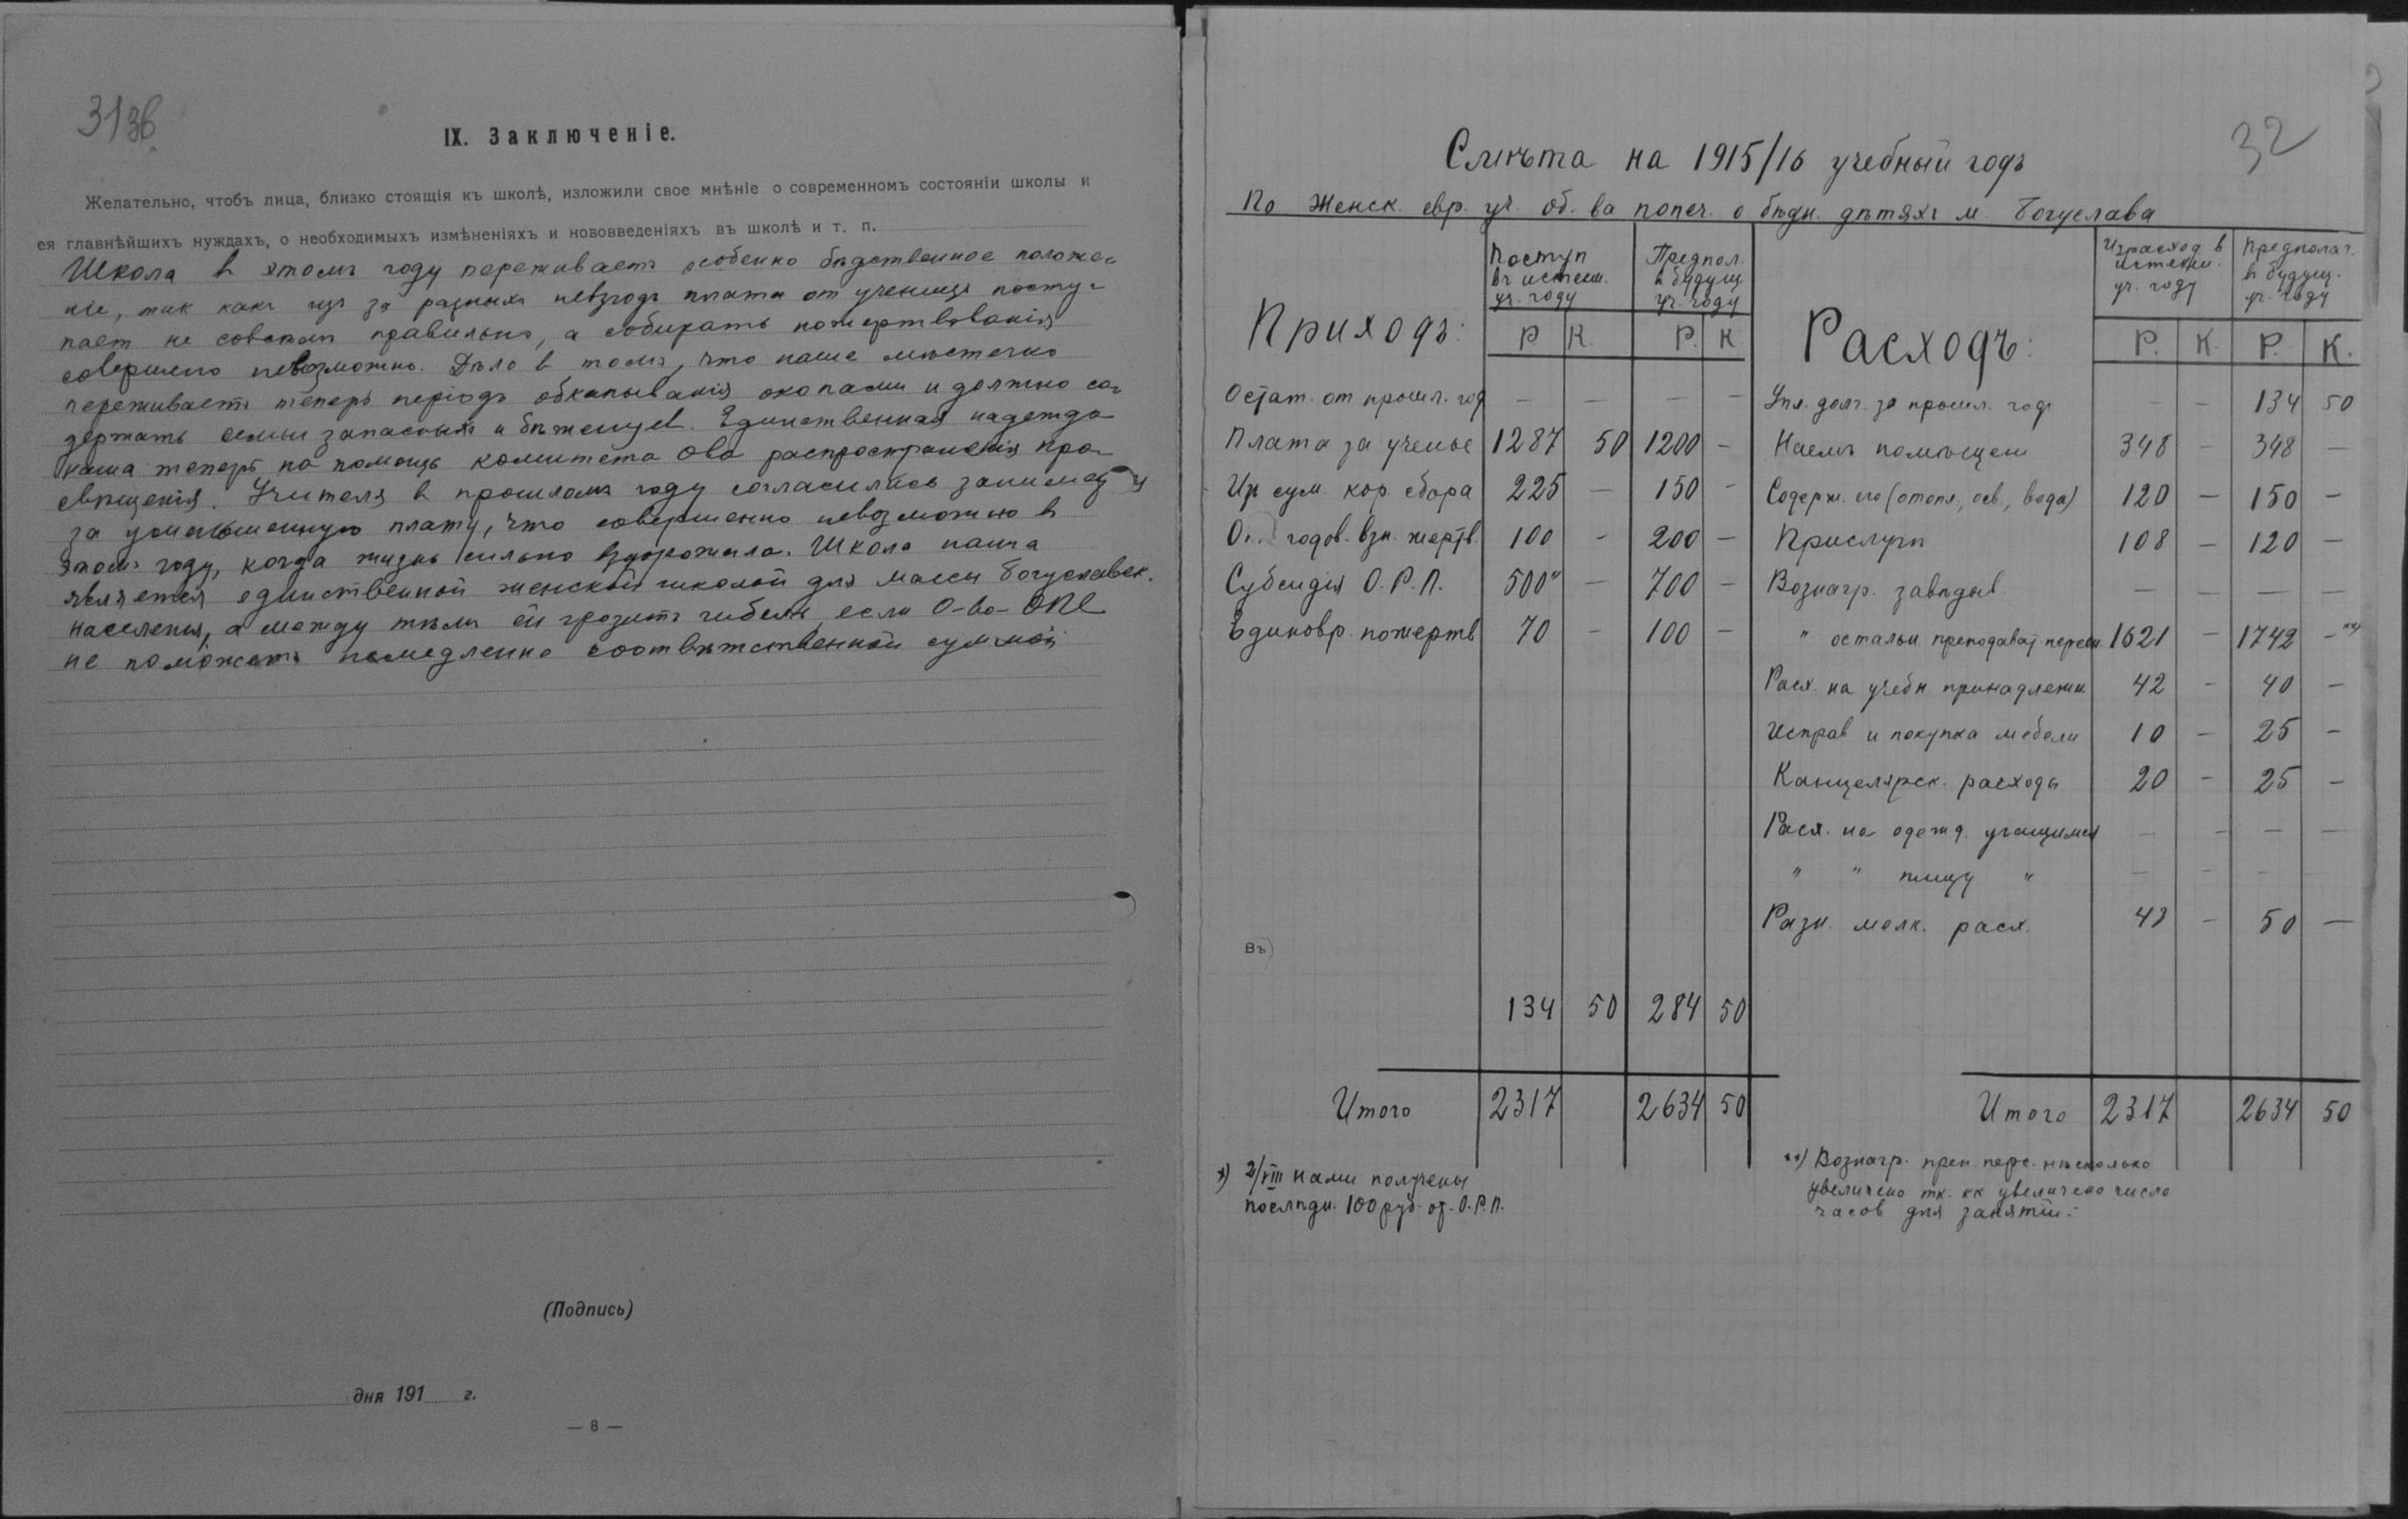 31зв.
IX. Заключеніе.
Желательно, чтобъ лица, близко стоящія къ школѣ, изложили свое мнѣніе о современномъ состояніи школы и
ея главнѣйшихъ нуждахъ, о необходимыхъ измѣненіяхъ и нововведеніяхъ въ школѣ и т. п.
Школа в этомъ году переживаетъ особенно бѣдственное положе-
ніе, так какъ изъ за разныхъ невзгодъ плата от ученицъ посту-
пает не совсѣмъ правильно, а собирать пожертвованія
совершено невозможно. Дѣло в томъ, что наше мѣстечко
переживаетъ теперь періодъ обкапыванія окопами и должно со-
держать семьи запасныхъ и бѣженцев. Единственная надежда
наша теперь на помощь комитета Ова распространенія про-
свѣщенія. Учителя в прошломъ году согласились
за уменьшенную плату, что совершенно невозможно в
этомъ году, когда жизнь сильно вздорожала. Школа наша
является единственной женской школой для массы Богуславск.
населенія, а между тѣмъ ей грозитъ гибель, если О-во-
не поможетъ немедленно соотвѣтственной суммой
(Подпись)
дня 191 г.
— 8 —
32
Смѣта на 1915/16 учебный годъ
По Женск. евр. уч. об. ва попеч. о бѣдн. дѣтяхъ м. Богуслава
Приходъ: Поступ въ истекш. уч. году Р К. Предпол. в будущ. уч. году Р. К Расходъ: Израсход. в истекш. уч. году Р. К. Предполаг. в будущ. уч. году Р. К.
Остат. от прошл. год — — — — Упл. долг. за прошл. годъ — — 134 50
Плата за ученье 1287 50 1200 — Наемъ помѣщен 348 — 348 —
Из сум. кор. сбора 225 — 150 — Содерж. его (отопл., осв., вода) 120 — 150 —
От годов. взн. жертв. 100 - 200 — Прислуги 108 — 120 —
Субсидія О.Р.П. 500 — 700 — Вознагр. завѣдыв. — — — —
Единовр. пожертв 70 - 100 — " остальн преподават. персон. 1621 — 1742 — **)
Расх. на учебн принадлежн. 42 — 40 —
Исправ и покупка мебели 10 — 25 —
Канцелярск. расходы 20 — 25 —
Расх. на одежд. учащимся — — — —
" " пищу " — - -
Разн. мелк. расх. 48 — 50 —
Въ
134 50 284 50
Итого 2317 2634 50 Итого 2317 2634 50
*) 2/VIII нами получены
послѣдн. 100 руб. от. О.Р.П.
**) Вознагр. преп. перс. нѣсколько
увеличено тк. кк увеличено число
часов для занятій.